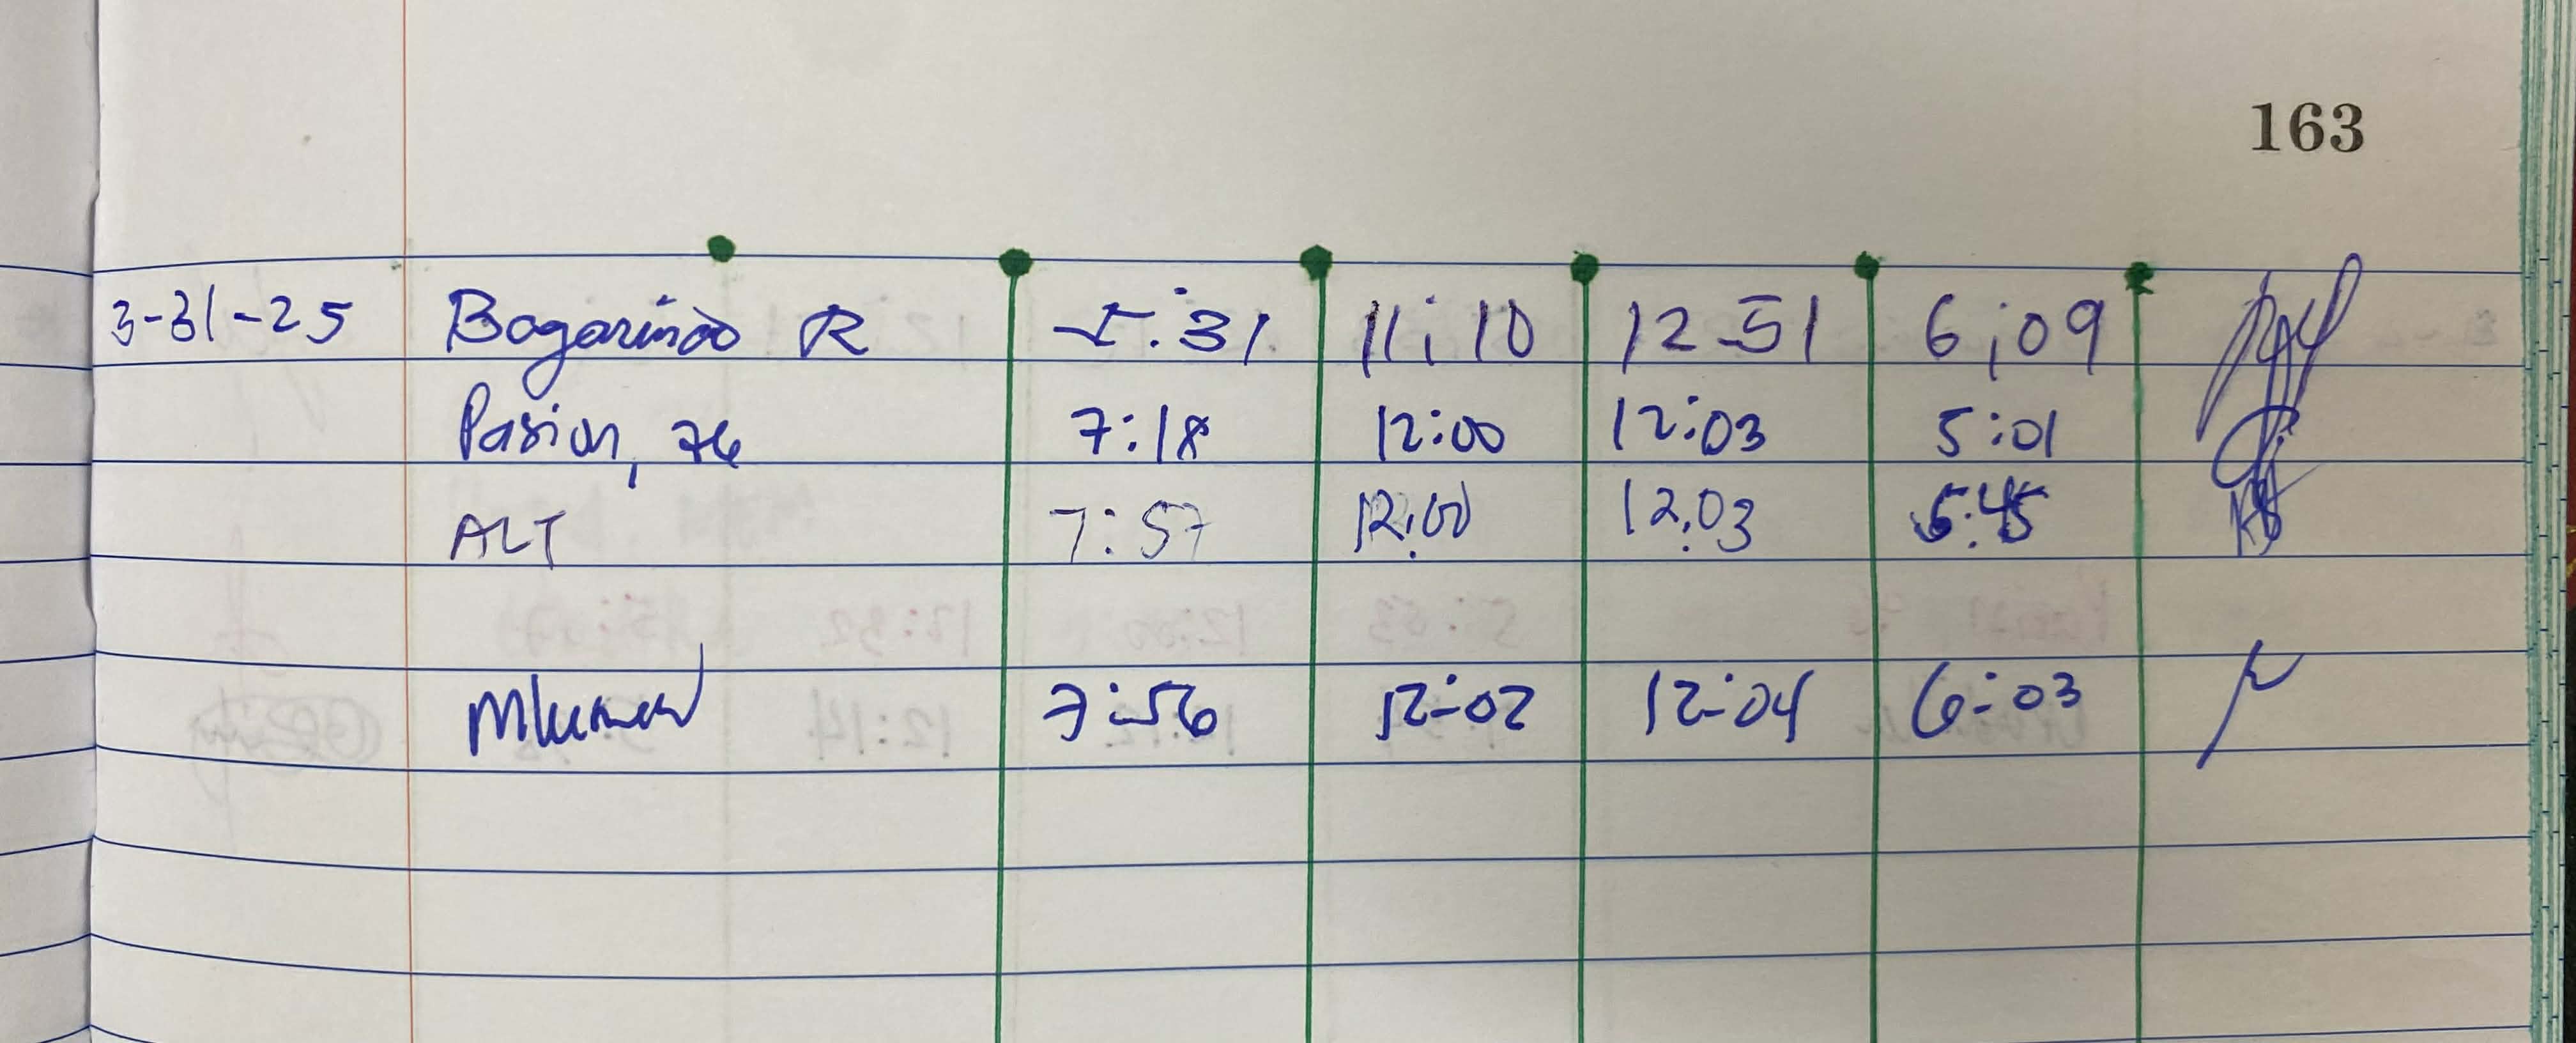 163
3-31-25 Bogarinao R 5:31 11:10 12-51 6:09
Pasion, 7:18 12:00 12:03 5:01
ALT 7:57 12:00 12:03 5:45
7:56 12:02 12:04 6:03